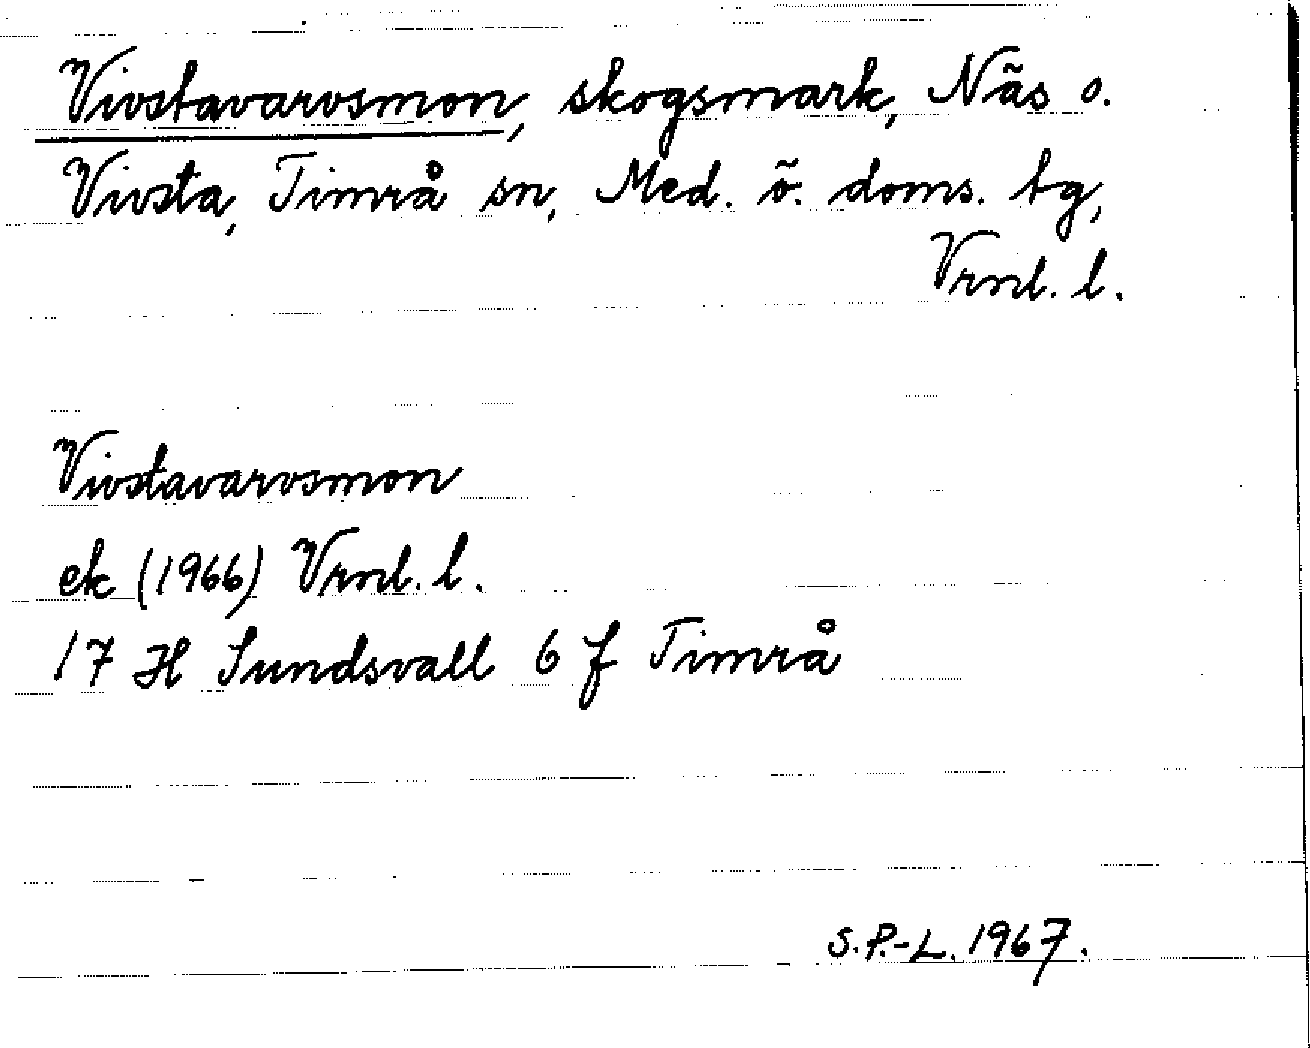 Vivstavarvsmon, skogsmark, Näs o.
Vivsta, Timrå sn, Med. ö. doms. tg,
Vrnl. l.
Vivstavarvsmon
ek (1966) Vrnl. l.
17 H Sundsvall 6 f Timrå
S.P.-L. 1967.